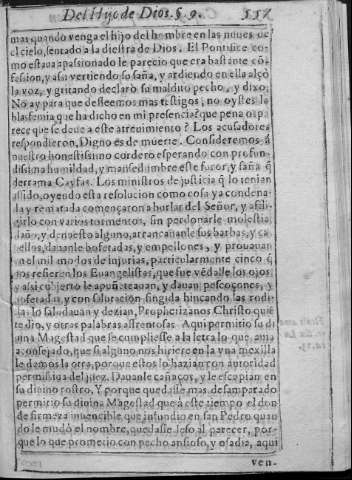 Del Hijo de Dios. §. 9. 557
mas quando venga el hijo del hombre en las nuues de
el cielo, sentado a la diestra de Dios. El Pontifice co-
mo estaua apasionado le parecio que era bastante cõ-
fession, y assi vertiendo su saña, y ardiendo en ella alçò
la voz, y gritando declarò su maldito pecho, y dixo:
No ay para que desseemos mas testigos; no oystes la
blasfemia que ha dicho en mi presencia: que pena os pa
rece que se deue a este atreuimiento? Los acusadores
respondieron, Digno es de muerte. Consideremos à
nuestro honestissimo cordero esperando con profun-
dissima humildad, y mansedumbre este furor, y saña q̃
derrama Cayfas. Los ministros de justicia q̃ lo tenian
asido, oyendo esta resolucion como cosa ya condena-
da y rematada começaron a burlar del Señor, y afli-
girlo con varios tormentos, sin perdonarle molestia
daño, y denuesto alguno, arrancauanle sus barbas, y ca
bellos, dauanle bofetadas, y empellones, y prouauan
en el mil modos de injurias, particularmente cinco q̃
nos refieren los Euangelistas, que fue vẽdalle los ojos
y assi cubierto le apuñeteauan, y dauan pescoçones, y
bofetadas, y con salutacion fingida hincando las rodi-
llas lo saludauan y dezian, Prophetizanos Christo quiẽ
te dio, y otras palabras affrentosas. Aqui permitio su di
uina Magestad que se cumpliesse a la letra lo que auia
aconsejado, que si alguno nos hiriere en la vna mexilla
le demos la otra, porque estos lo hazian con autoridad
permissiua del juez. Dauanle cañaços, y le escupian en
su diuino rostro. Y porque quedasse mas desamparado
permitio su diuina Magestad que à este tiempo el don
de firmeza inuencible que infundio en san Pedro quan
do le mudò el nombre, quedasse leso al parecer, por-
que lo que prometio con pecho ansioso, y osadia, aqui
ven-